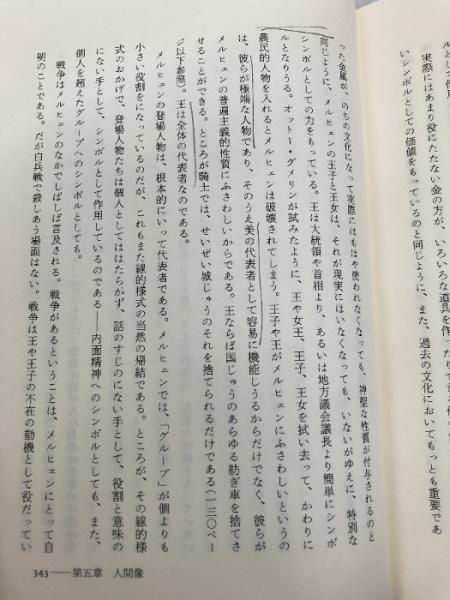 ルとして作用
実際にはあまり役にたたない金の方が、いろいろな道具を作った
いシンボルとしての価値をもっているのと同じように、また、過去の文化においてもっとも重要であ
った金属が、のちの文化になって実際にはもはや使われなくなっても、神聖な性質が付与されるのと
同じように、メルヒェンの王子と王女は、それが現実にはいなくなっても、いないがゆえに、特別な
シンボルとしての力をもっている。王は大統領や首相より、あるいは地方議会議長より簡単にシンボ
ルとなりうる。オットー・ダメリンが試みたように、王や女王、王子、王女を拭い去って、かわりに
農民的人物を入れるとメルヒェンは破壊されてしまう。王子や王がメルヒェンにふさわしいというの
は、彼らが極端な人物であり、そのうえ美の代表者として容易に機能しうるからだけでなく、彼らが
メルヒェンの普遍主義的性質にふさわしいからである。王ならば国じゅうのあらゆる紡ぎ車を捨てさ
せることができる。ところが騎士では、せいぜい城じゅうのそれを捨てられるだけである(一三〇ペー
ジ以下参照)。王は全体の代表者なのである。
メルヒェンの登場人物は、根本的にいって代表者である。メルヒェンでは、「グループ」が個よりも
小さい役割をになっているのだが、これもまた線的様式の当然の帰結である。ところが、その線的様
式のおかげで、登場人物たちは個人としてははたらかず、話のすじのにない手として、役割と意味の
にない手として、シンボルとして作用しているのである——内面精神へのシンボルとしても、また、
個人を超えたグループへのシンボルとしても。
戦争はメルヒェンのなかでしばしば言及される。戦争があるということは、メルヒェンにとって自
明のことである。だが白兵戦で殺しあう場面はない。戦争は王や王子の不在の動機として役だってい
343——第五章 人間像